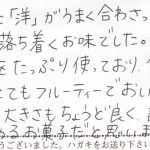 と「洋」がうまく合わさっ
落ち着くお味でした。
をたっぷり使っており、
てもフルーティーでおい
大きさもちょうど良く、
るお菓子だと思いま
うございました。ハガキをお送り下さい